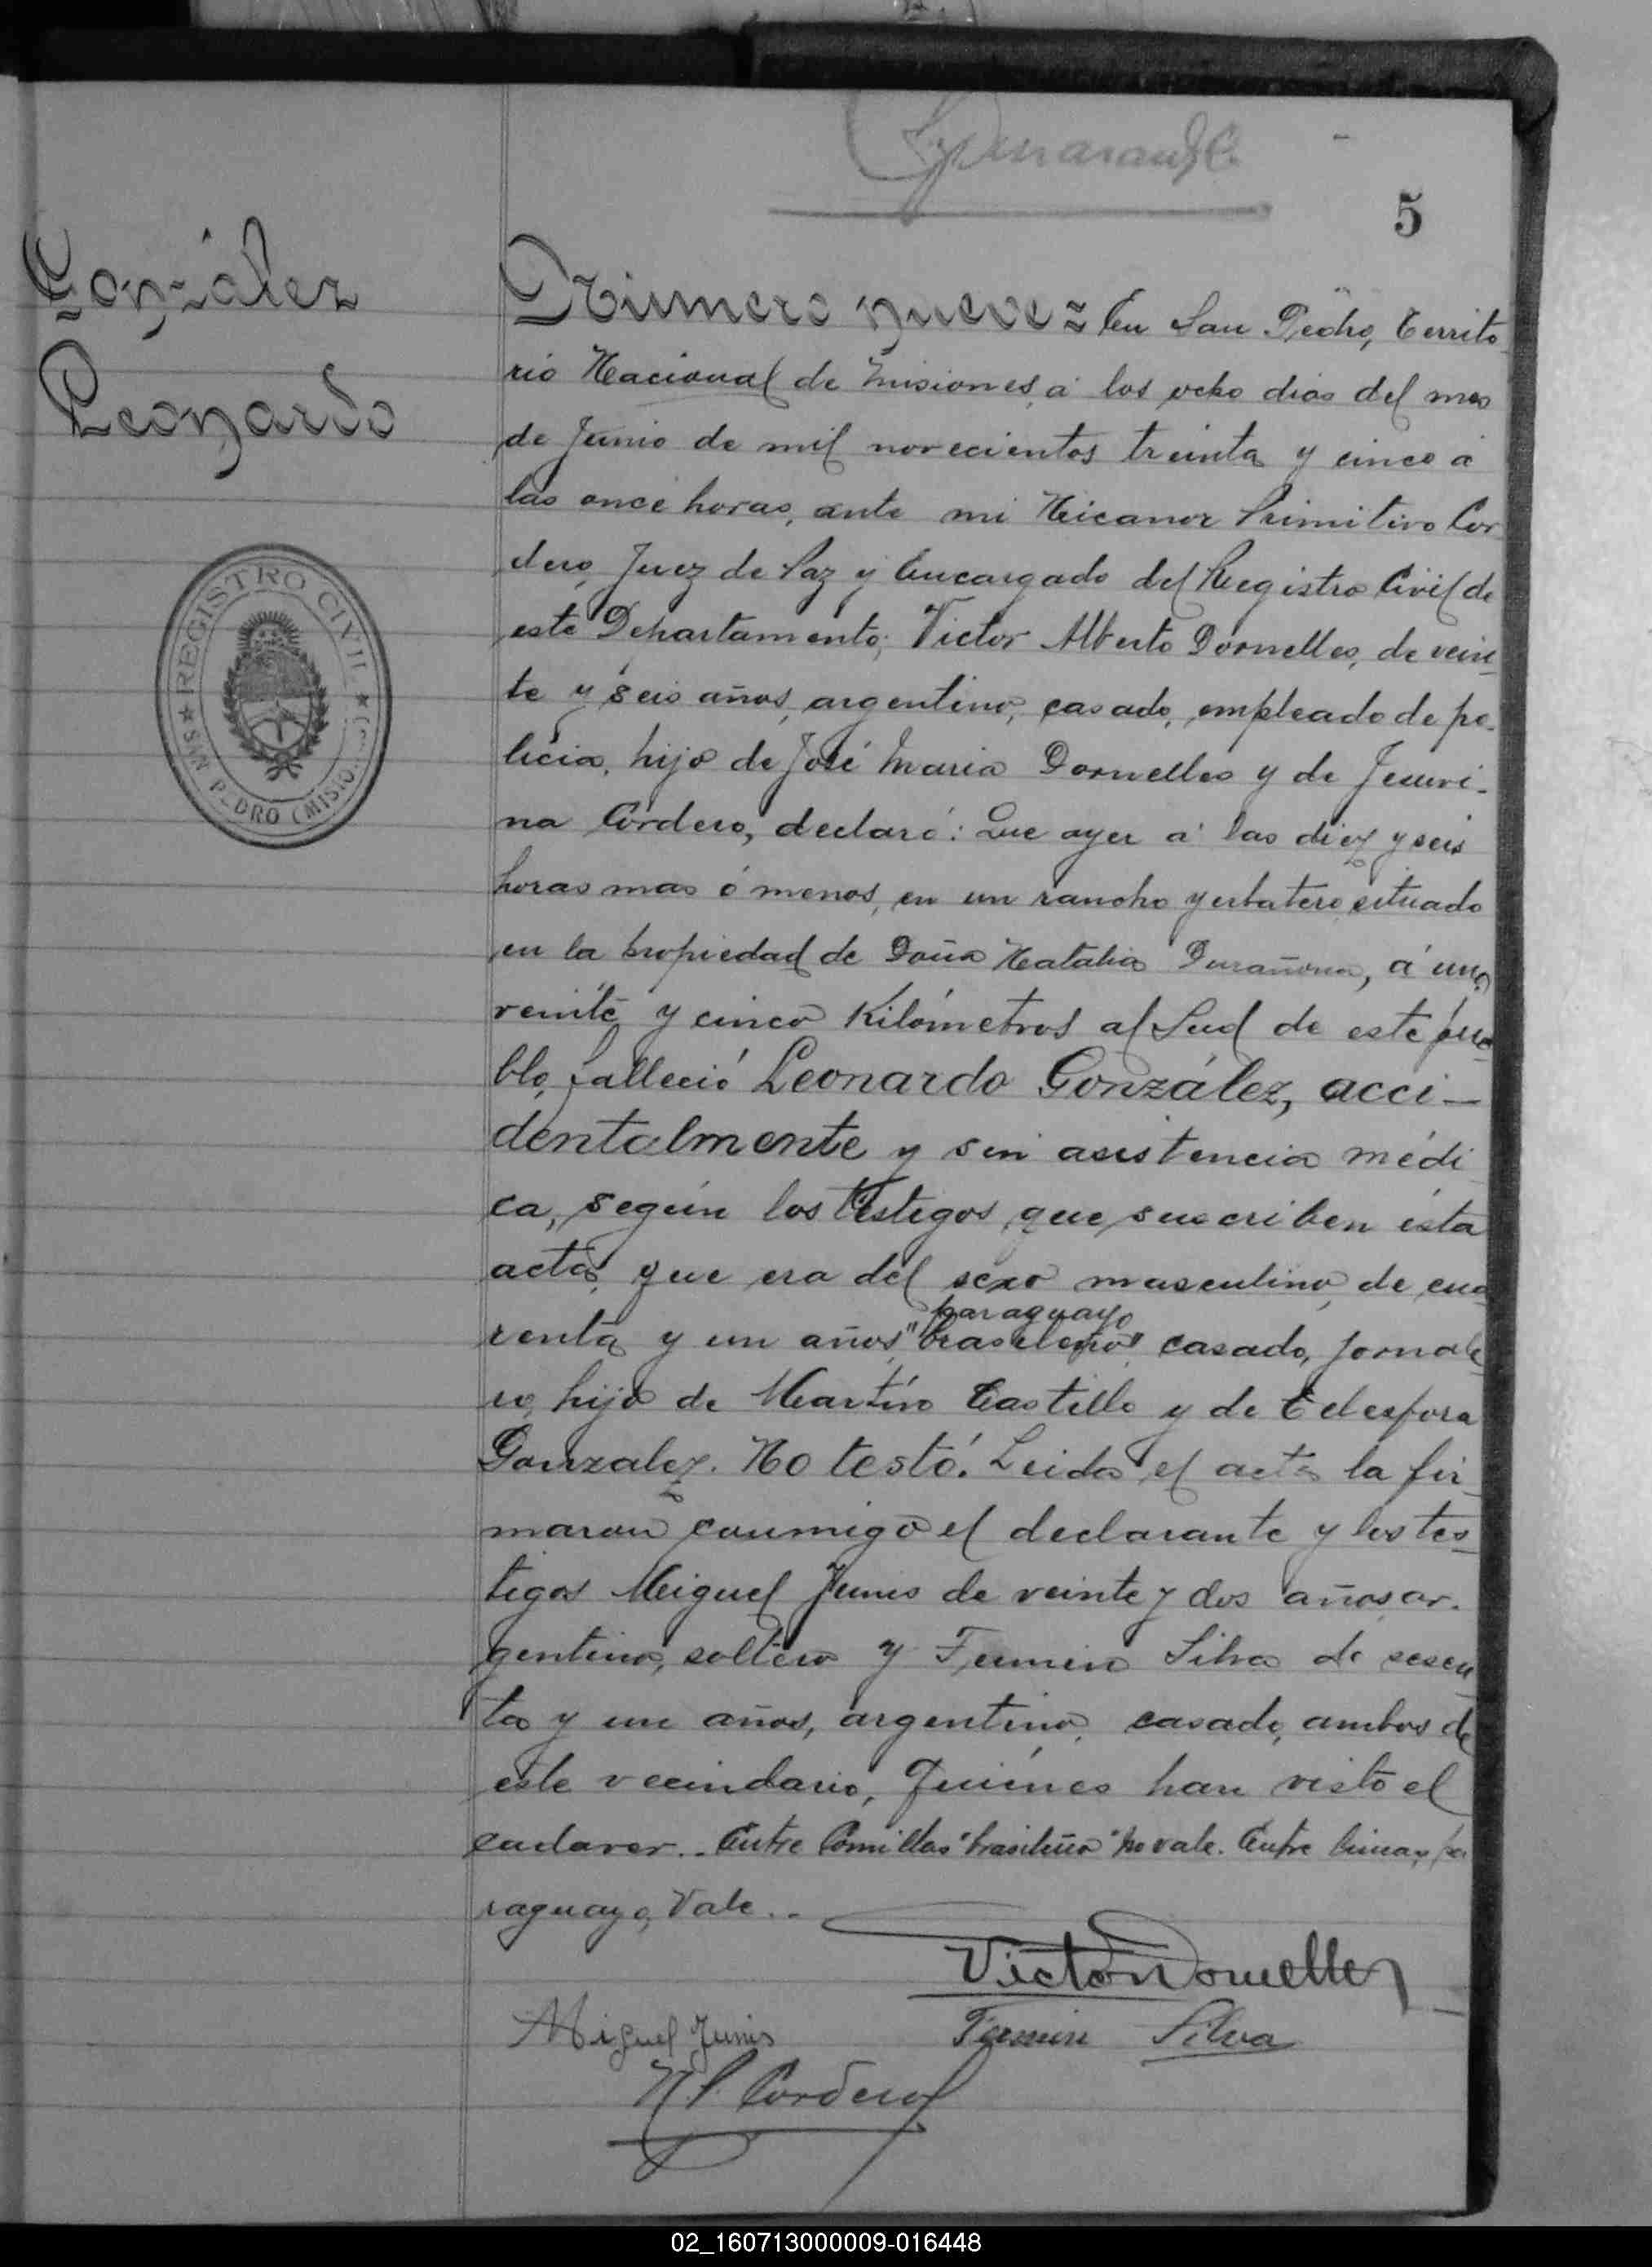 5
González
Leonardo
REGISTRO CIVIL
SAN PEDRO (MISIO
Número nueve = En San Pedro, Territo
rio Nacional de Misiones, á los ocho dias del mes
de Junio de mil novecientos treinta y cinco á
las once horas, ante mi Nicanor Primitivo Cor
dero, Juez de Paz y Encargado del Registro Civil de
este Departamento; Victor Alberto Dornelles, de vein
te y seis años, argentino, casado, empleado de po-
licia, hijo de José Maria Dornelles y de
na Cordero, declaró: Que ayer á las diez y seis
horas mas ó menos, en un rancho yerbatero situado
en la propiedad de Doña Natalia Durañona, á unos
veinte y cinco Kilómetros al Sud de este pue
blo, falleció Leonardo González, acci-
dentalmente y sin asistencia médi
ca, según los testigos que suscriben ésta
acta, que era del sexo masculino, de cua
paraguayo
renta y un años, "brasileño" casado, jornale
ro, hijo de Martín Castillo y de Telesfora
Gonzalez. No testó. Leida el acta la fir
maron conmigo el declarante y los tes-
tigos Miguel Junis de veinte y dos años, ar-
gentino, soltero y Fermin Silva de sesen
ta y un años, argentino, casado, ambos de
este vecindario, Quiénes han visto el
cadaver.. Entre Comillas "brasileño" no vale. Entre lineas, pa
raguayo, Vale..
Victor Dornelles
Miguel Junis
Fermin Silva
N. P. Cordero
02_160713000009-016448